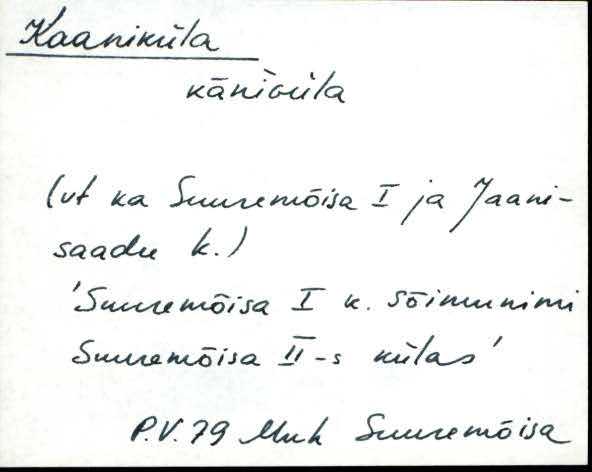 Kaaniküla
kāniɢüla
(vt ka Suuremõisa I ja Jaani-
saadu k.)
'Suuremõisa I k. sõimunimi
Suuremõisa II-s külas'
P.V. 79 Muh Suuremõisa